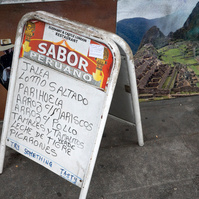 SABOR
PERUANO
JALEA
LOMO SALTADO
PARIHUELA
ARROZ C/ MARISCOS
ARROZ Y POLLO
TAMALES Y
LECHE DE TIGRE
PICARONES
TRY SOMETHING TASTY